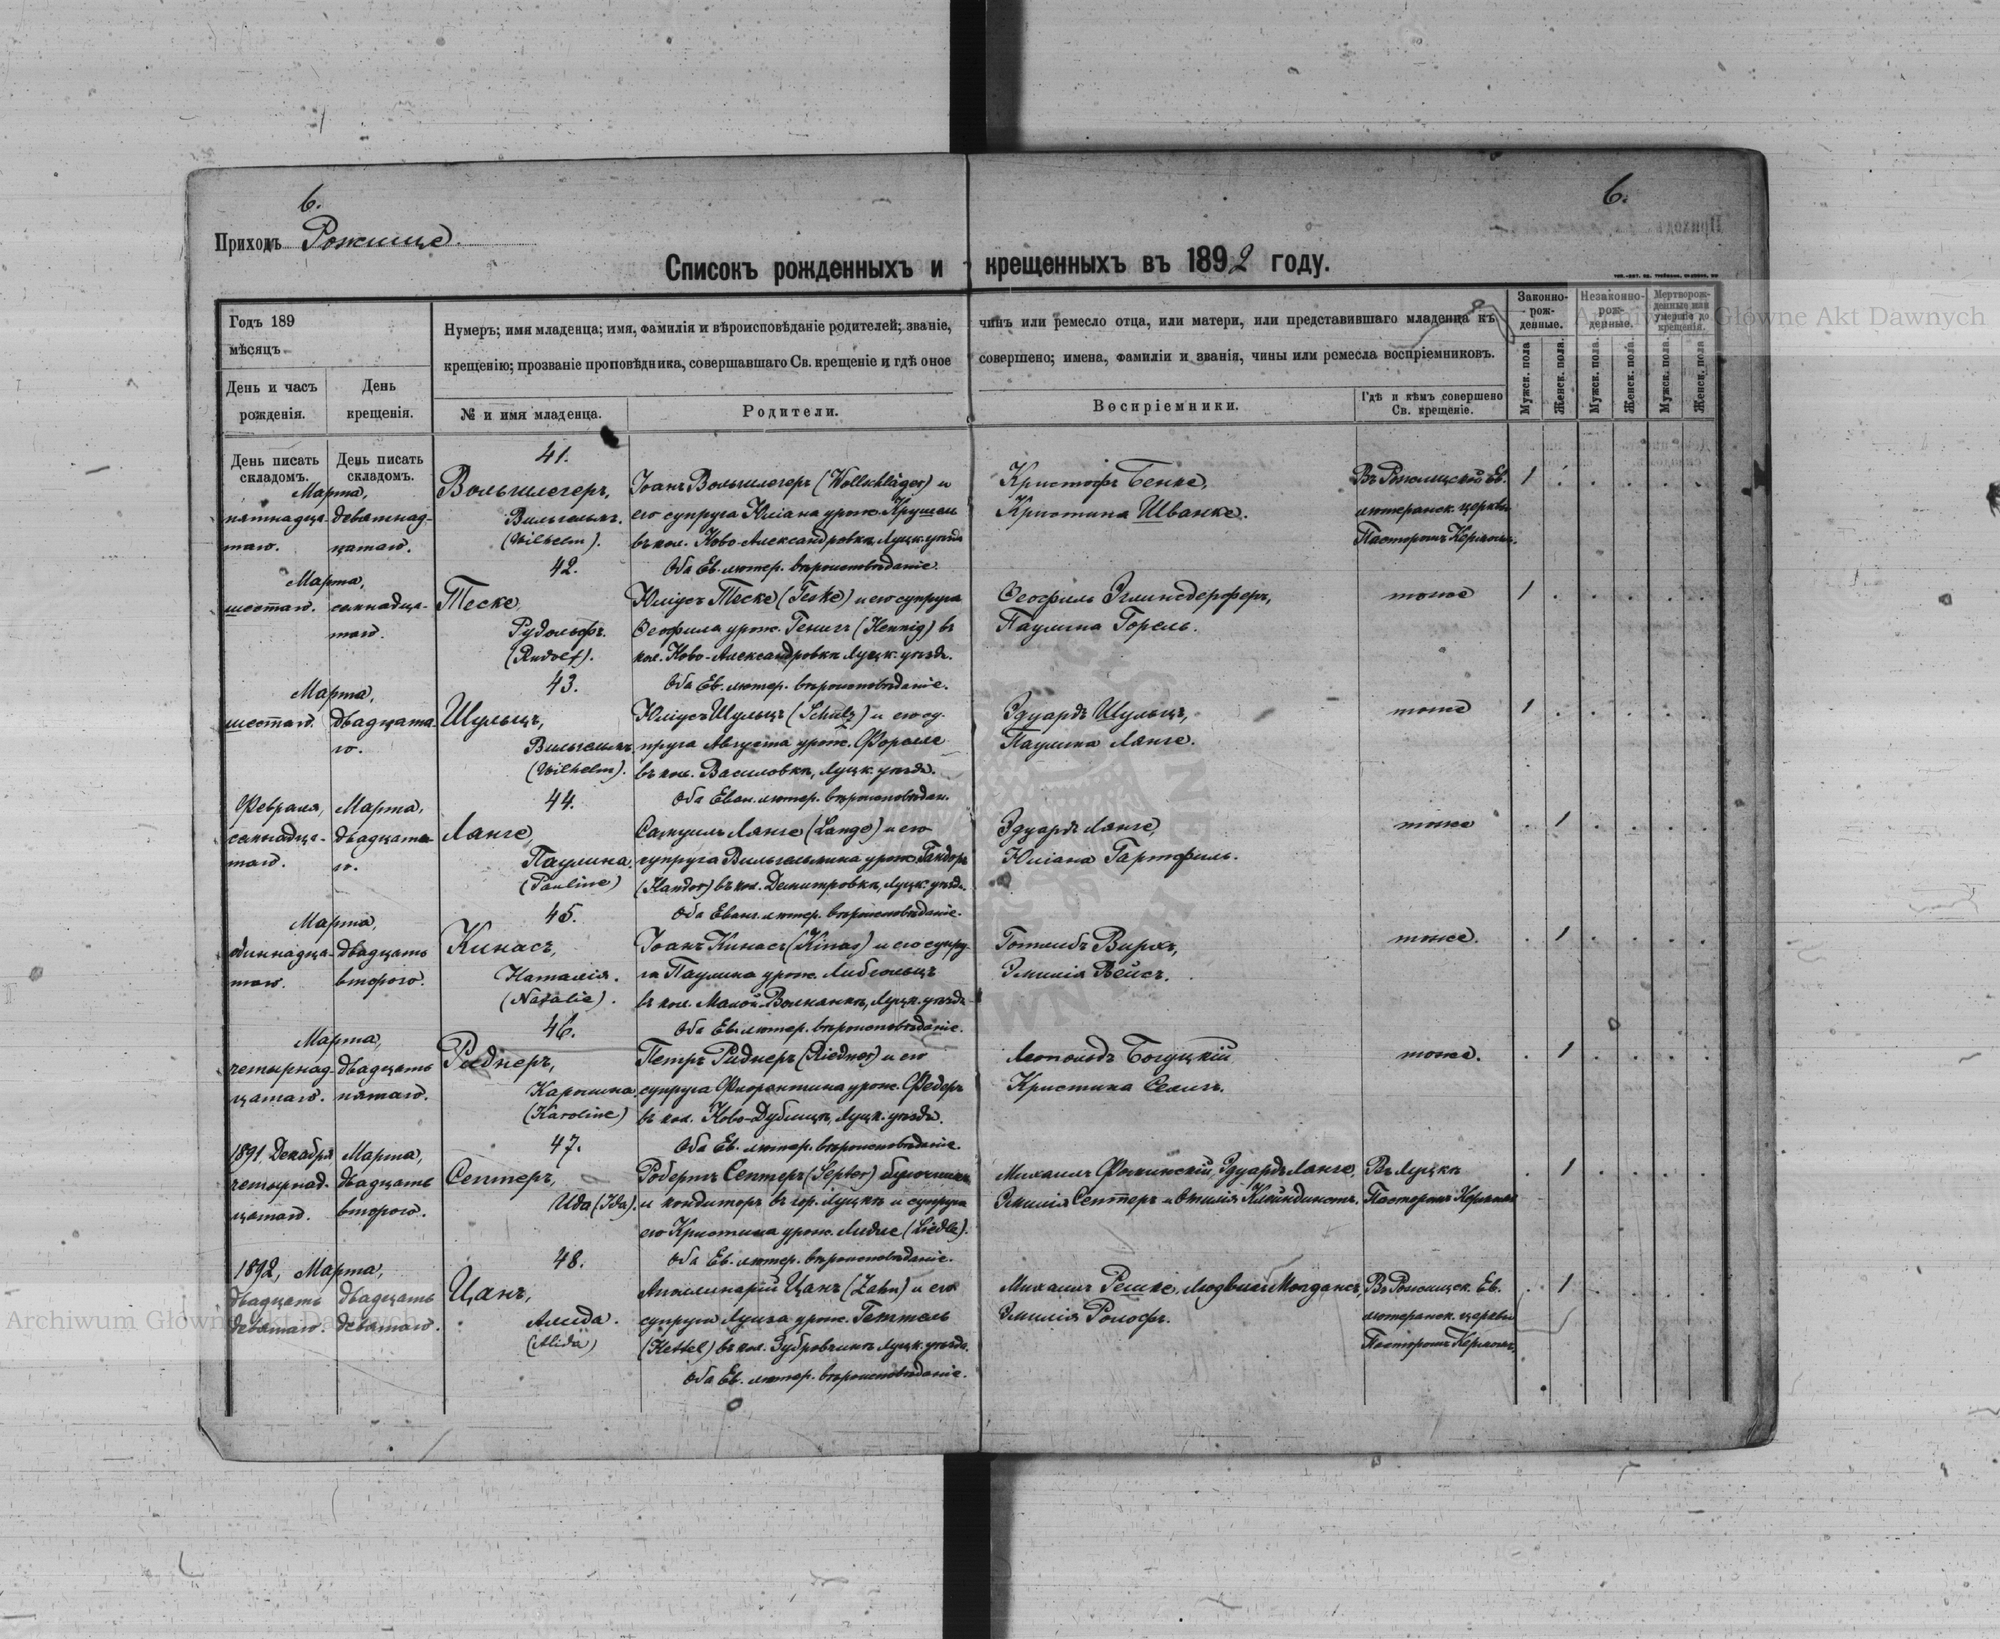 6.
6.
Приходъ Рожище.
Списокъ рожденныхъ и крещенныхъ въ 1892 году.
Годъ 189
мѣсяцъ
День и часъ рожденія.
День крещенія.
Нумеръ; имя младенца; имя, фамилія и вѣроисповѣданіе родителей; званіе, чинъ или ремесло отца, или матери, или представившаго младенца къ
крещенію; прозваніе проповѣдника, совершавшаго Св. крещеніе и гдѣ оное совершено; имена, фамиліи и званія, чины или ремесла воспріемниковъ.
№ и имя младенца.
Родители.
Воспріемники.
Гдѣ и кѣмъ совершено Св. крещеніе.
Законно-рож-денные.
Незаконно-рож-денные.
Мертворож-денные или умершіе до крещенія.
Мужск. пола
Женск. пола.
Мужск. пола.
Женск. пола.
Мужск. пола.
Женск. пола
День писать складомъ.
День писать складомъ.
41.
Марта,
пятнадца-таго.
девятнад-цатаго.
Вольшлегеръ,
Вильгельмъ.
(Wilhelm).
Іоанъ Вольшлегеръ (Wollschläger) и
его супруга Юліана урож. Крушель
въ кол. Ново-Александровка, Луцк. уѣзда
Оба Ев. лютер. вѣроисповѣданіе.
Кристофъ Бенке,
Кристина Шванке.
Въ Рожищской Ев.
лютеранск. церкви
Пасторомъ Керномъ.
1
42.
Марта,
шестаго.
семнадца-таго.
Теске,
Рудольфъ.
(Rudolf).
Юліусъ Теске (Teske) и его супруга
Теофила урож. Генигъ (Hennig) въ
кол. Ново-Александровка Луцк. уѣзда.
Оба Ев. лютер. вѣроисповѣданіе.
Паулина Горель.
тоже
1
43.
Марта,
шестаго.
двадцата-го.
Шульцъ,
Вильгельмъ
(Wilhelm).
Юліусъ Шульцъ (Schulz) и его су-
пруга Августа урож.
въ кол. Василовка, Луцк. уѣзда.
Оба Еван. лютер. вѣроисповѣдан.
Эдуардъ Шульцъ,
Паулина Лянге.
тоже
1
44.
Февраля,
Марта,
семнадца-таго.
двадцата-го.
Лянге,
Паулина,
(Pauline)
Самуилъ Лянге (Lange) и его
супруга Вильгельмина урож. Гандоръ
(Handor) въ кол. Демитровка, Луцк. уѣзда.
Оба Еванг. лютер. вѣроисповѣданіе.
Эдуардъ Лянге,
Юліана Гартфиль.
тоже
1
45.
Марта,
одиннадца-таго.
двадцать второго.
Кинасъ,
Наталія.
(Natalie).
Іоанъ Кинасъ (Kinas) и его супру-
га Паулина урож. Либгольцъ
въ кол. Малой-Волнянка, Луцк. уѣзда
Оба Ев. лютер. вѣроисповѣданіе.
Готлибъ Вирхъ,
Эмилія Вейсъ.
тоже.
1
46.
Марта,
четырнад-цатаго.
двадцать пятаго.
Риднеръ,
Каролина,
(Karoline)
Петръ Риднеръ (Riedner) и его
супруга Флорентина урож. Федеръ
въ кол. Ново-Дубище, Луцк. уѣзда.
Оба Ев. лютер. вѣроисповѣданіе.
Леопольдъ Богуцкій
Кристина Селигъ.
тоже.
1
47.
1891, Декабря
Марта,
четырнад-цатаго.
двадцать второго.
Септеръ,
Ида (Ida).
Робертъ Септеръ (Septer) булочникъ
и кондиторъ въ гор. Луцкъ и супруга
его Кристина урож. Лидле (Liedle).
Оба Ев. лютер. вѣроисповѣданіе.
Михаилъ Фолинскій, Эдуардъ Лянге,
Эмилія Септеръ и Отилія Клейндинстъ.
Въ Луцкѣ
Пасторомъ Керномъ
1
48.
1892, Марта,
двадцать девятаго.
двадцать девятаго.
Цанъ,
Алида.
(Alida)
Апполинарій Цанъ (Zahn) и его
супруга Луиза урож. Геттель
(Hettel) въ кол. Зубровчинъ Луцк. уѣзда.
Оба Ев. лютер. вѣроисповѣданіе.
Михаилъ Решке,
Эмилія Рольофъ.
Въ Рожищск. Ев.
лютеранск. церкви
Пасторомъ Керномъ.
1
Archiwum Główne Akt Dawnych
Archiwum Główne Akt Dawnych